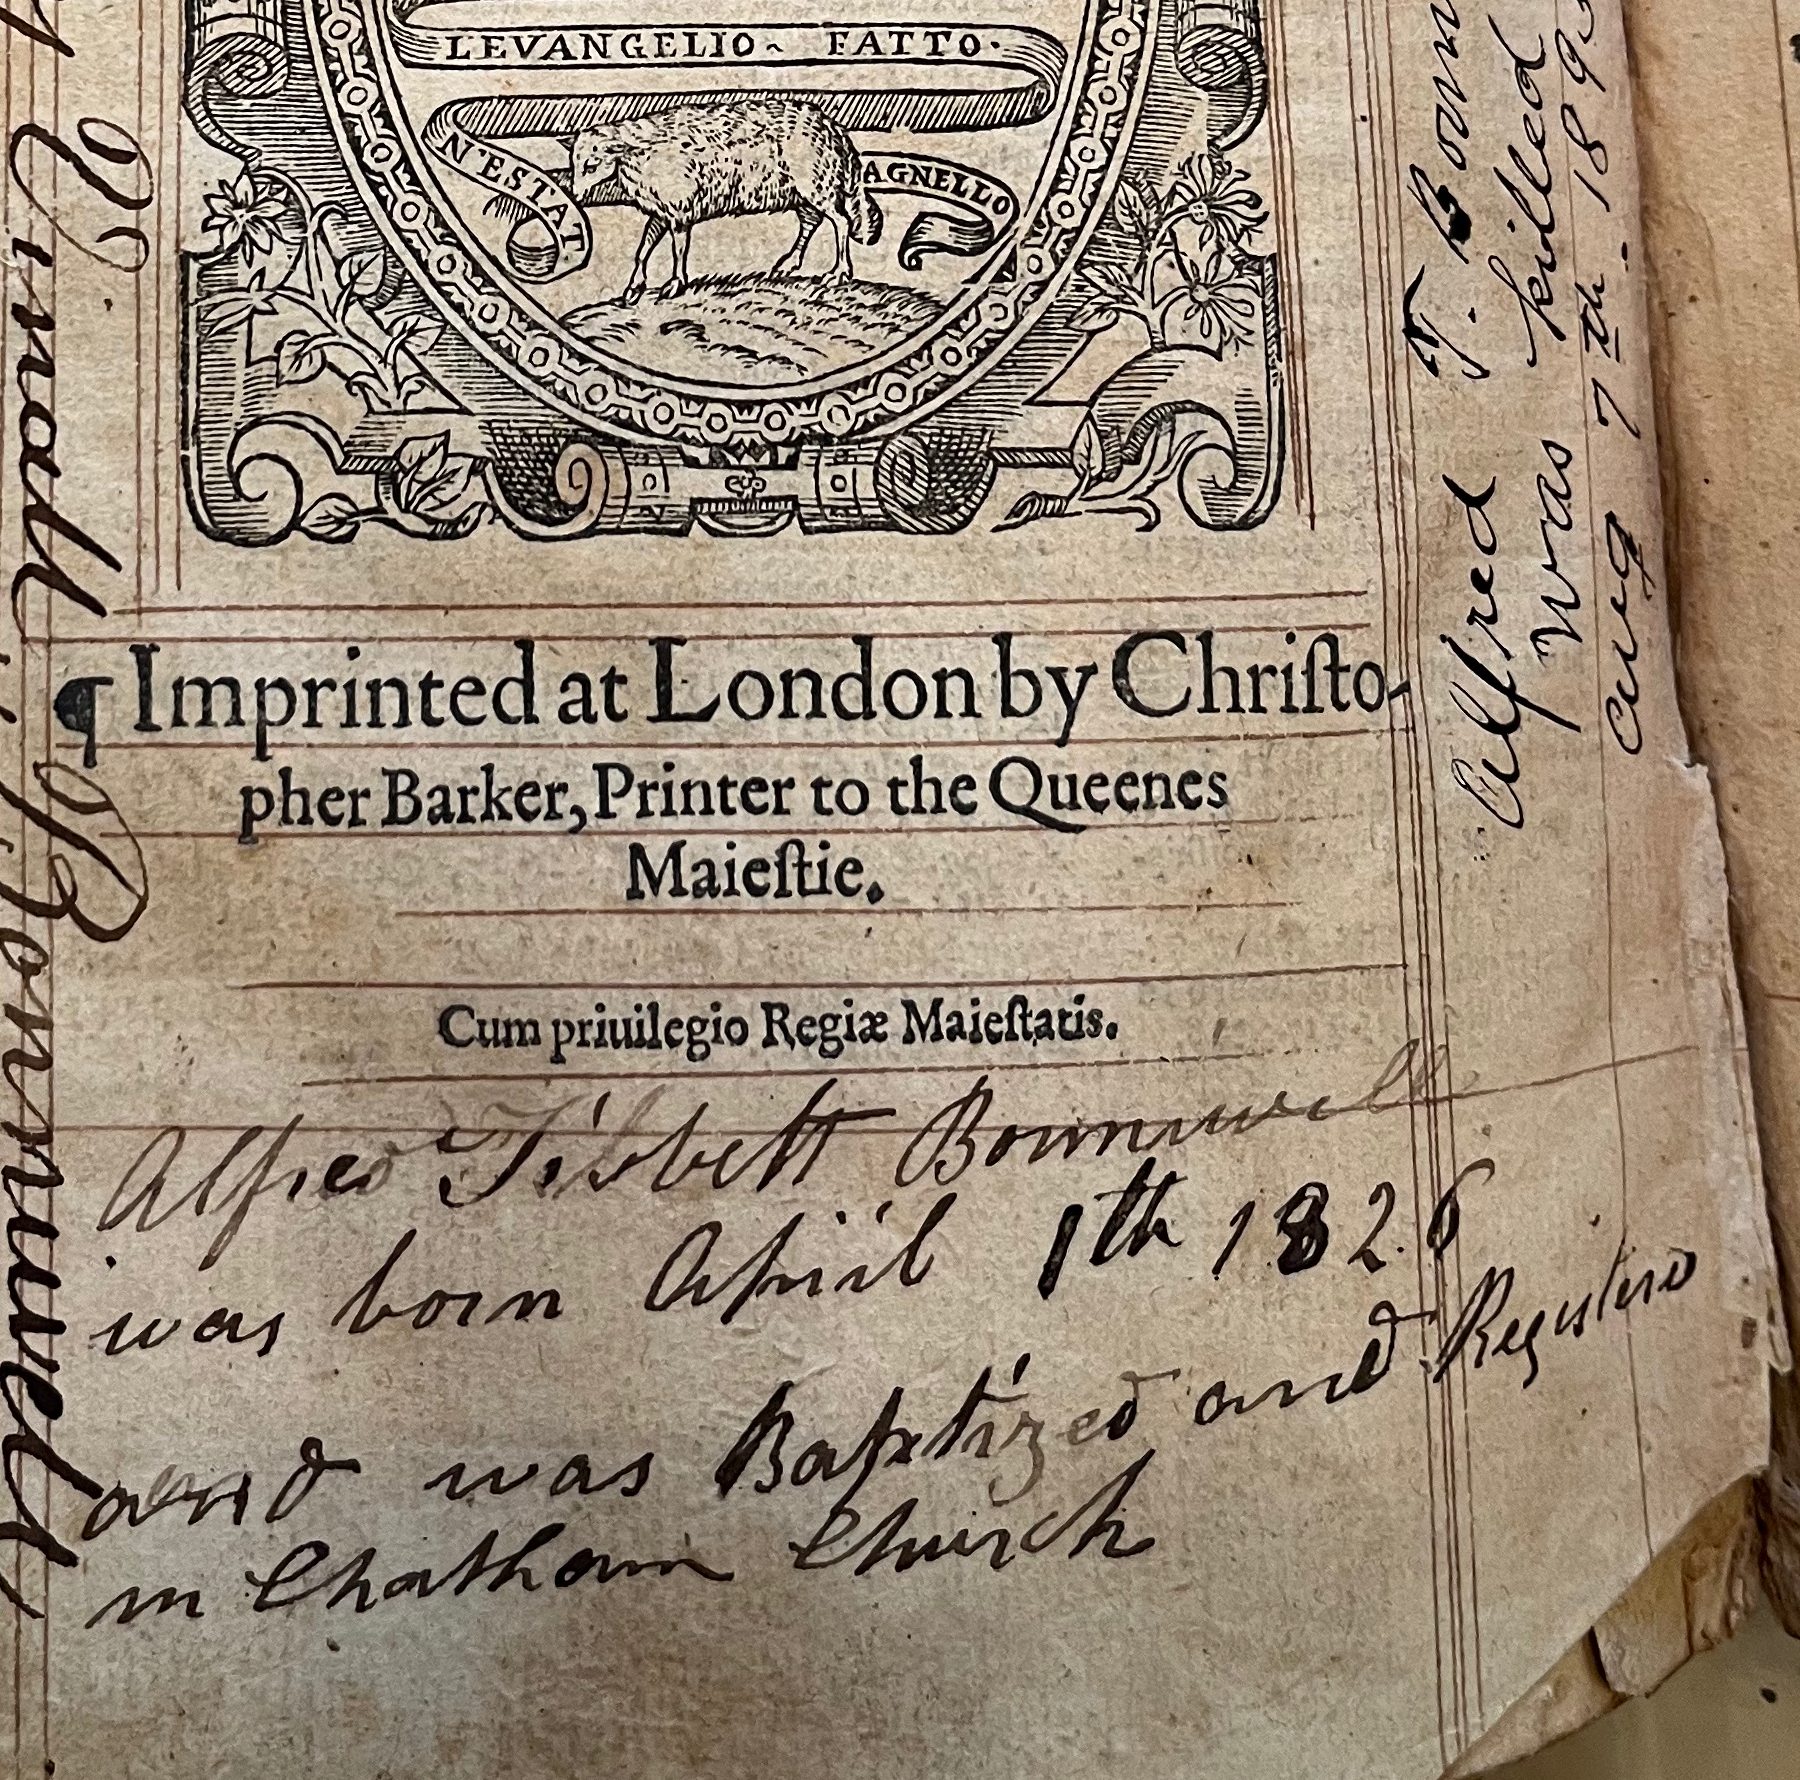 LEVANGELIO~ FATTO·
N'ESTAT AGNELLO
¶ Imprinted at London by Chriſto-
pher Barker, Printer to the Queenes
Maieſtie.
Cum priuilegio Regiæ Maieſtatis.
Alfred Tibbett Bonniwell
was born April 1th 1826
and was Baptized and Registerd
in Chatham Church
Alfred T. Bonn
Was killed
aug 7th. 189
Bonniwell